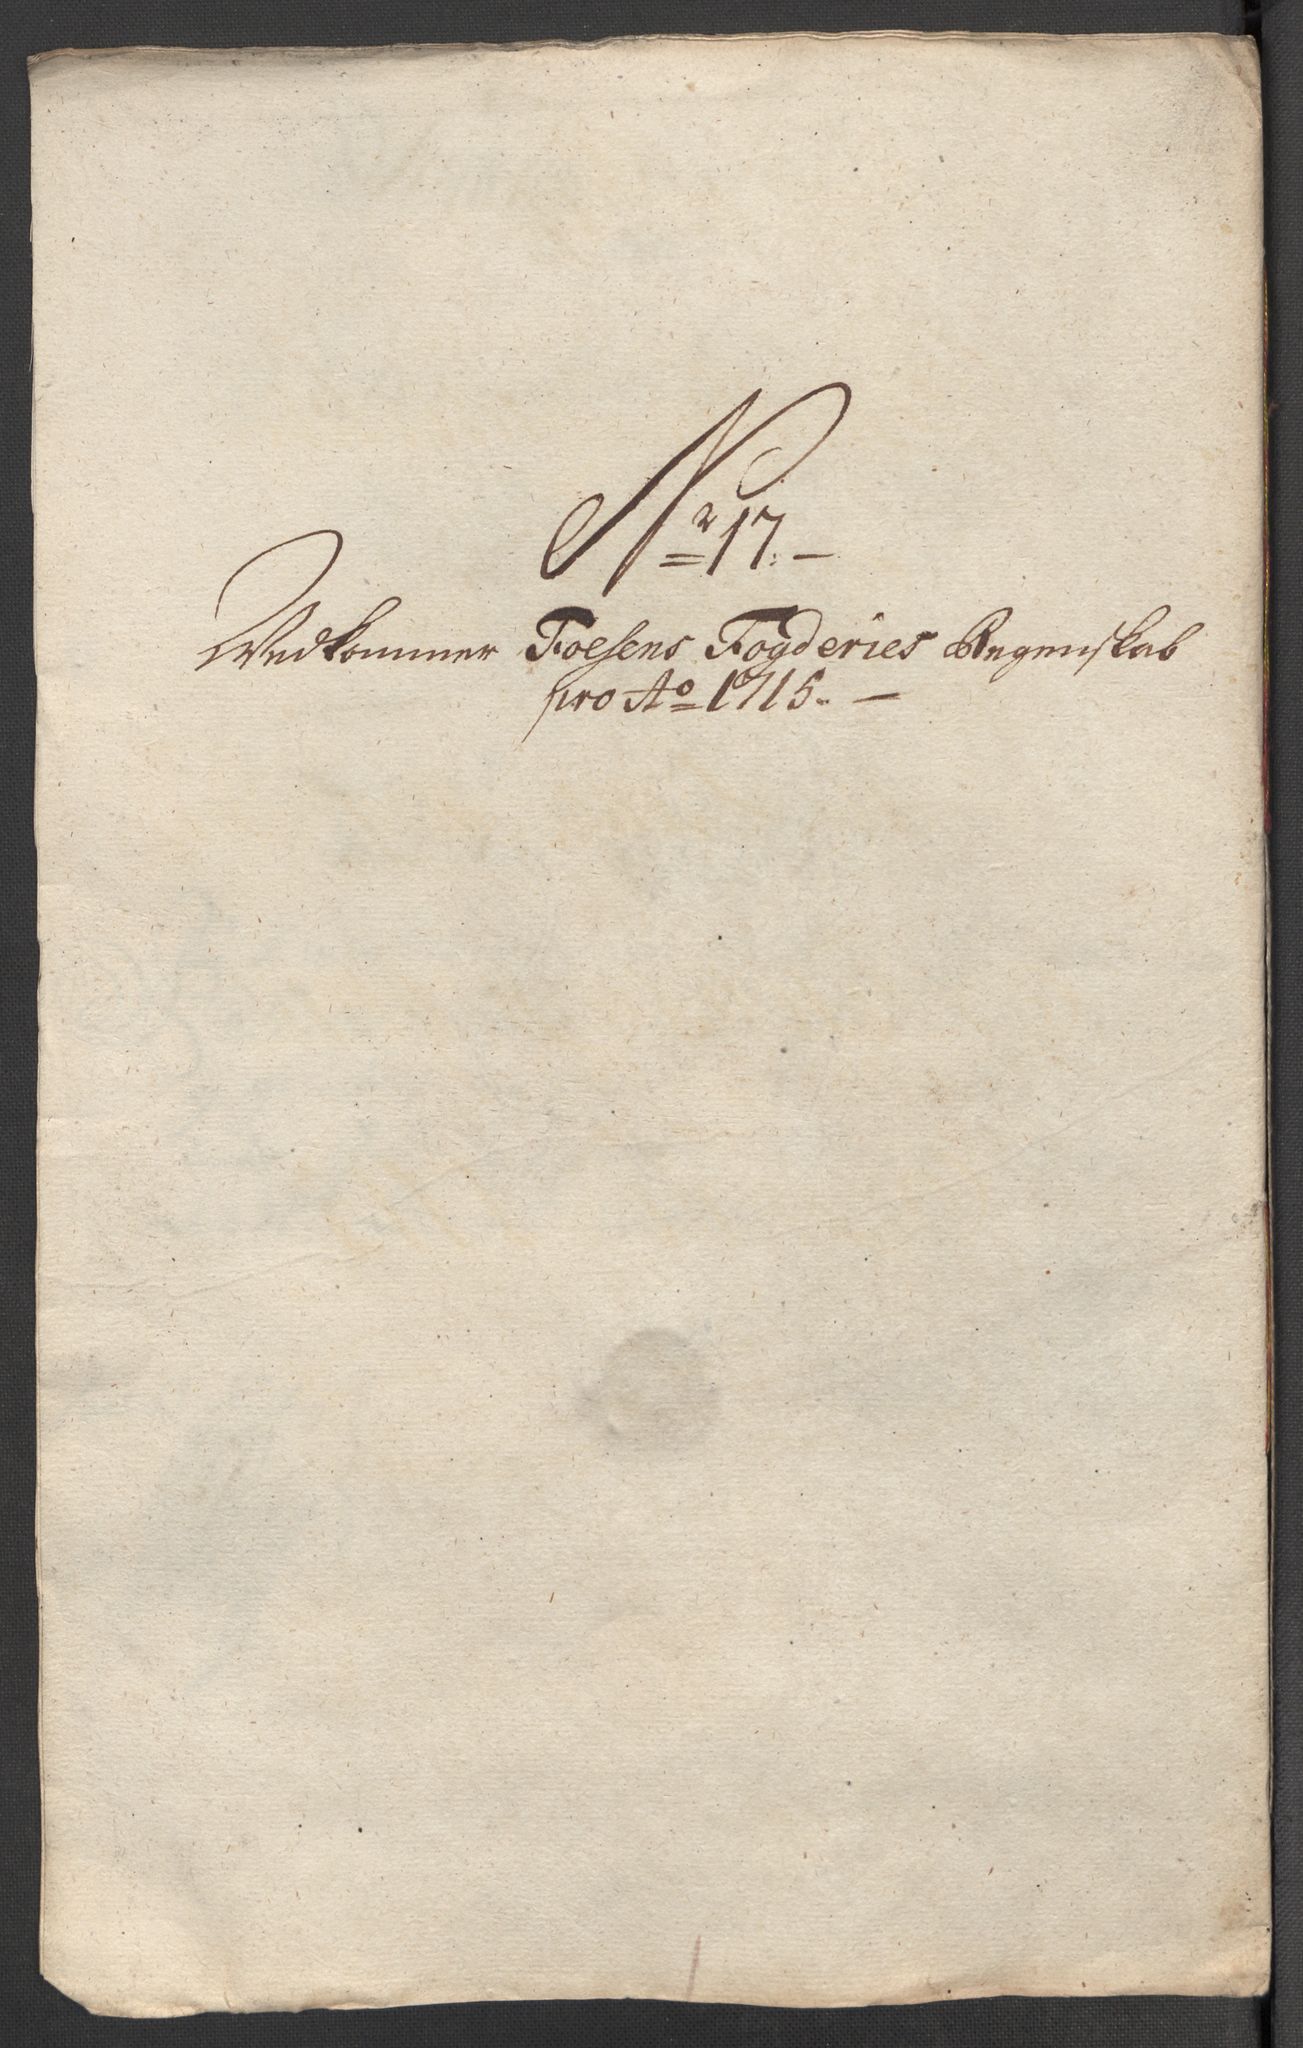 Nr 17. —
Vedkommer Foesens Fogderies Regenskab
pro Ao 1715. —